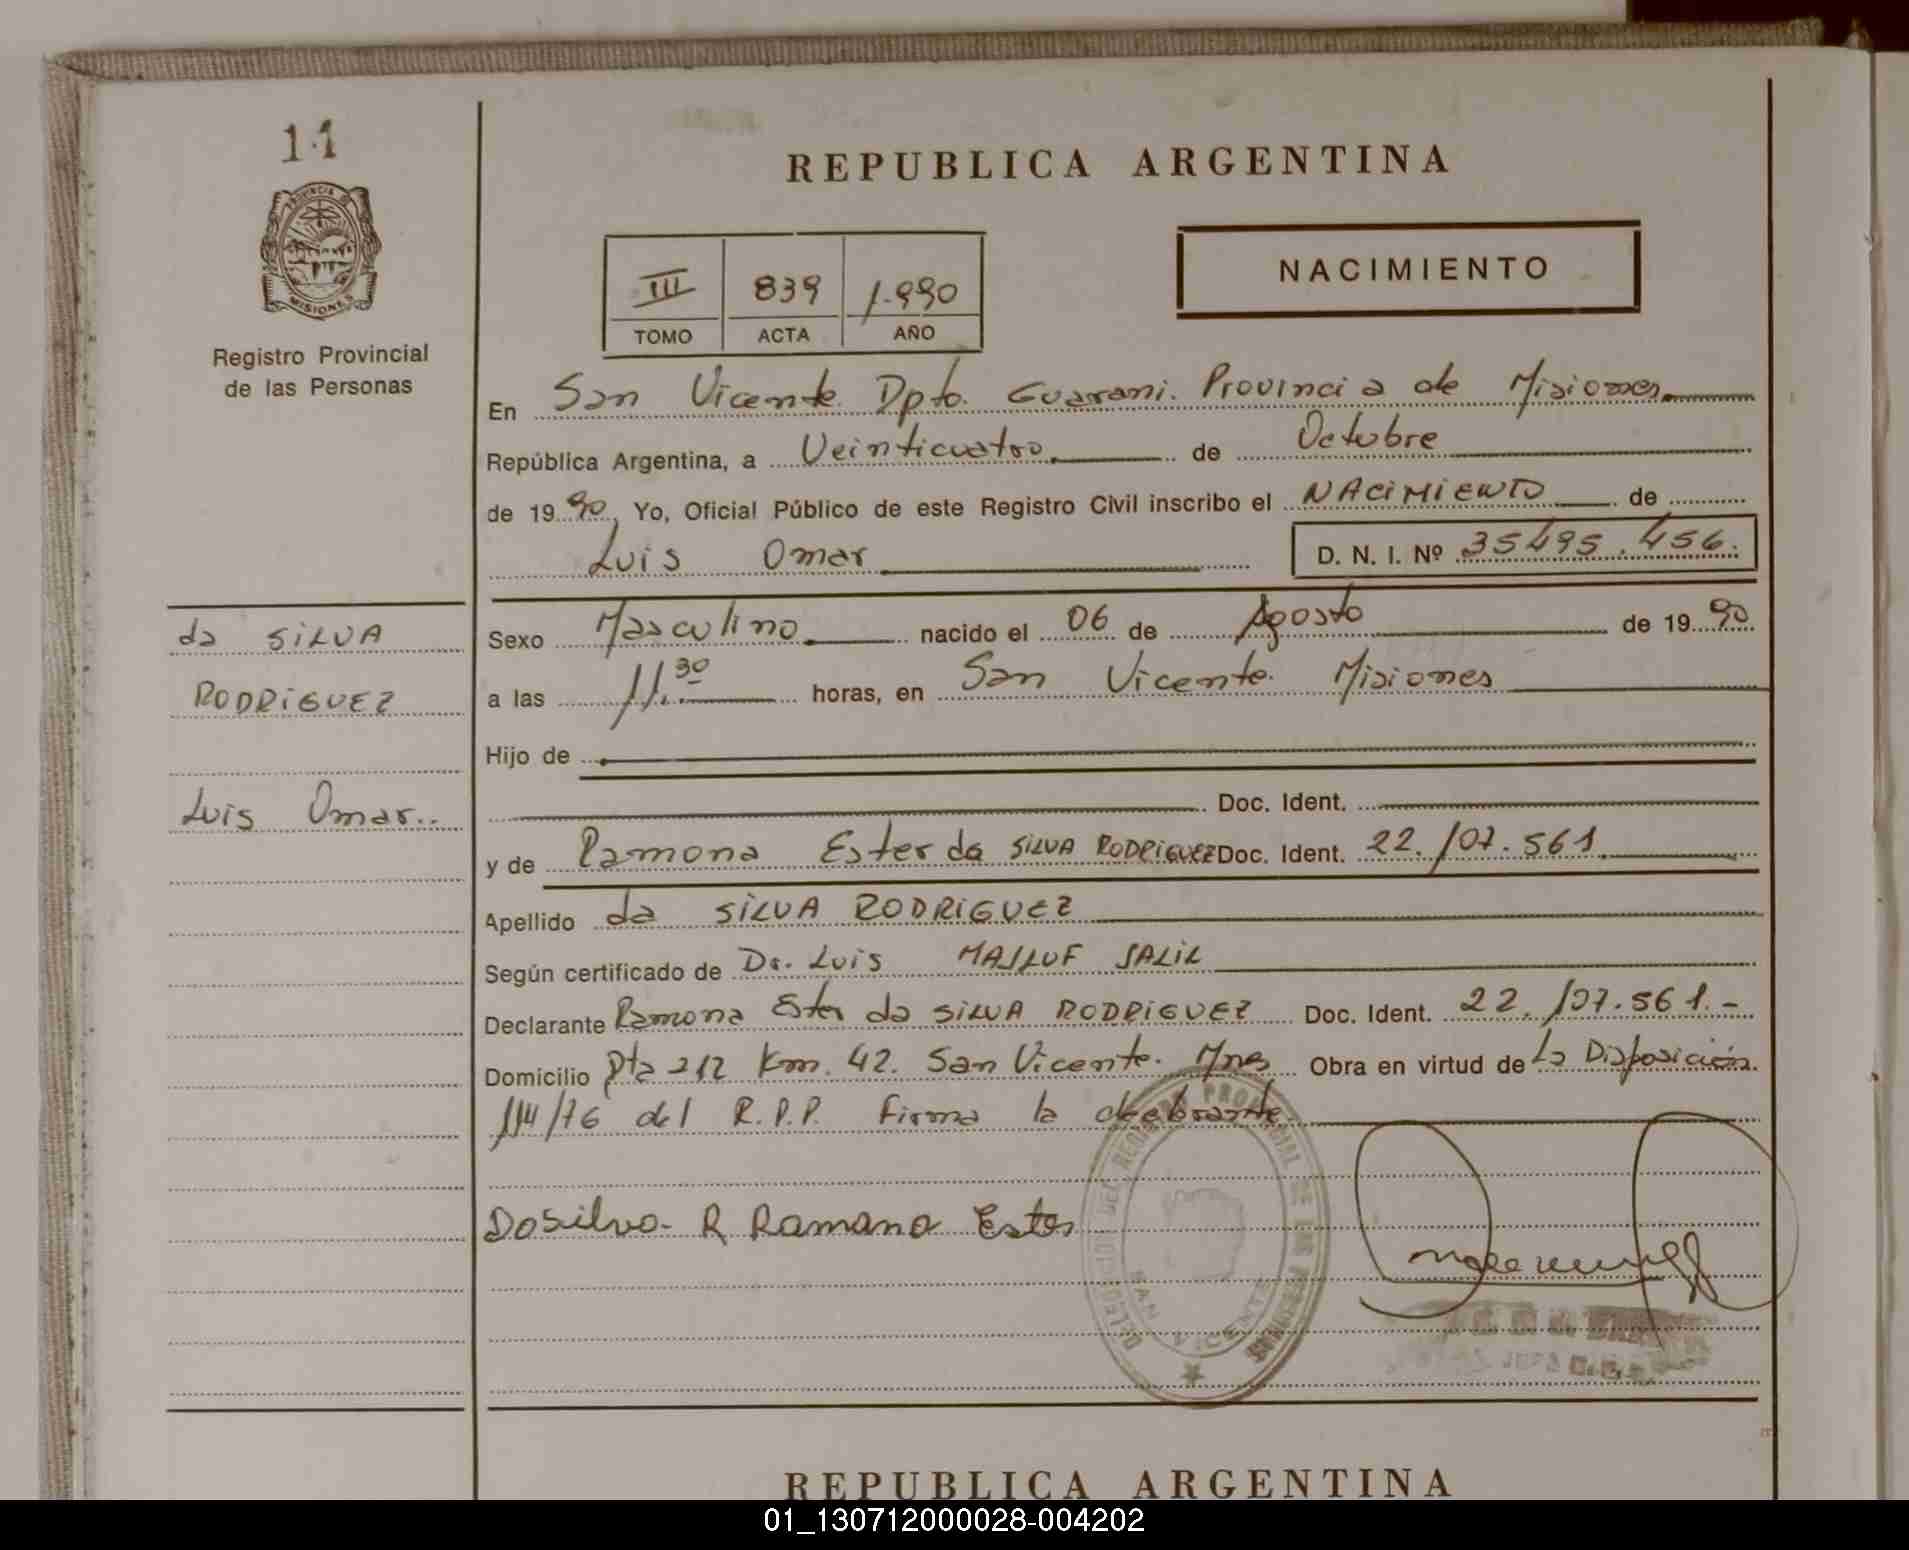 11
PROVINCIA DE
MISIONES
Registro Provincial
de las Personas
REPUBLICA ARGENTINA
III 839 1.990
TOMO ACTA AÑO
NACIMIENTO
En San Vicente Dpto. Guarani. Provincia de Misiones.
República Argentina, a Veinticuatro. de Octubre
de 1990, Yo, Oficial Público de este Registro Civil inscribo el NACIMIENTO de
Luis Omar D. N. I. Nº 35495.456.
Sexo Masculino nacido el 06 de Agosto de 1990
a las 11.30 horas, en San Vicente. Misiones
Hijo de
Doc. Ident.
y de Ramona Ester da SILVA RODRIGUEZ Doc. Ident. 22.107.561.
Apellido da SILVA RODRIGUEZ
Según certificado de Dr. Luis MASLUF SALIL
Declarante Ramona Ester da SILVA RODRIGUEZ Doc. Ident. 22.107.561.-
Domicilio Rta 212 Km. 42. San Vicente. Mnes Obra en virtud de La Disposición
114/76 del R.P.P. Firma la declarante.
da SILVA
RODRIGUEZ
Luis Omar..
DaSilva R Ramona Ester
DELEGACION DEL REGISTRO PROVINCIAL DE LAS PERSONAS
SAN VICENTE
REPUBLICA ARGENTINA
01_130712000028-004202